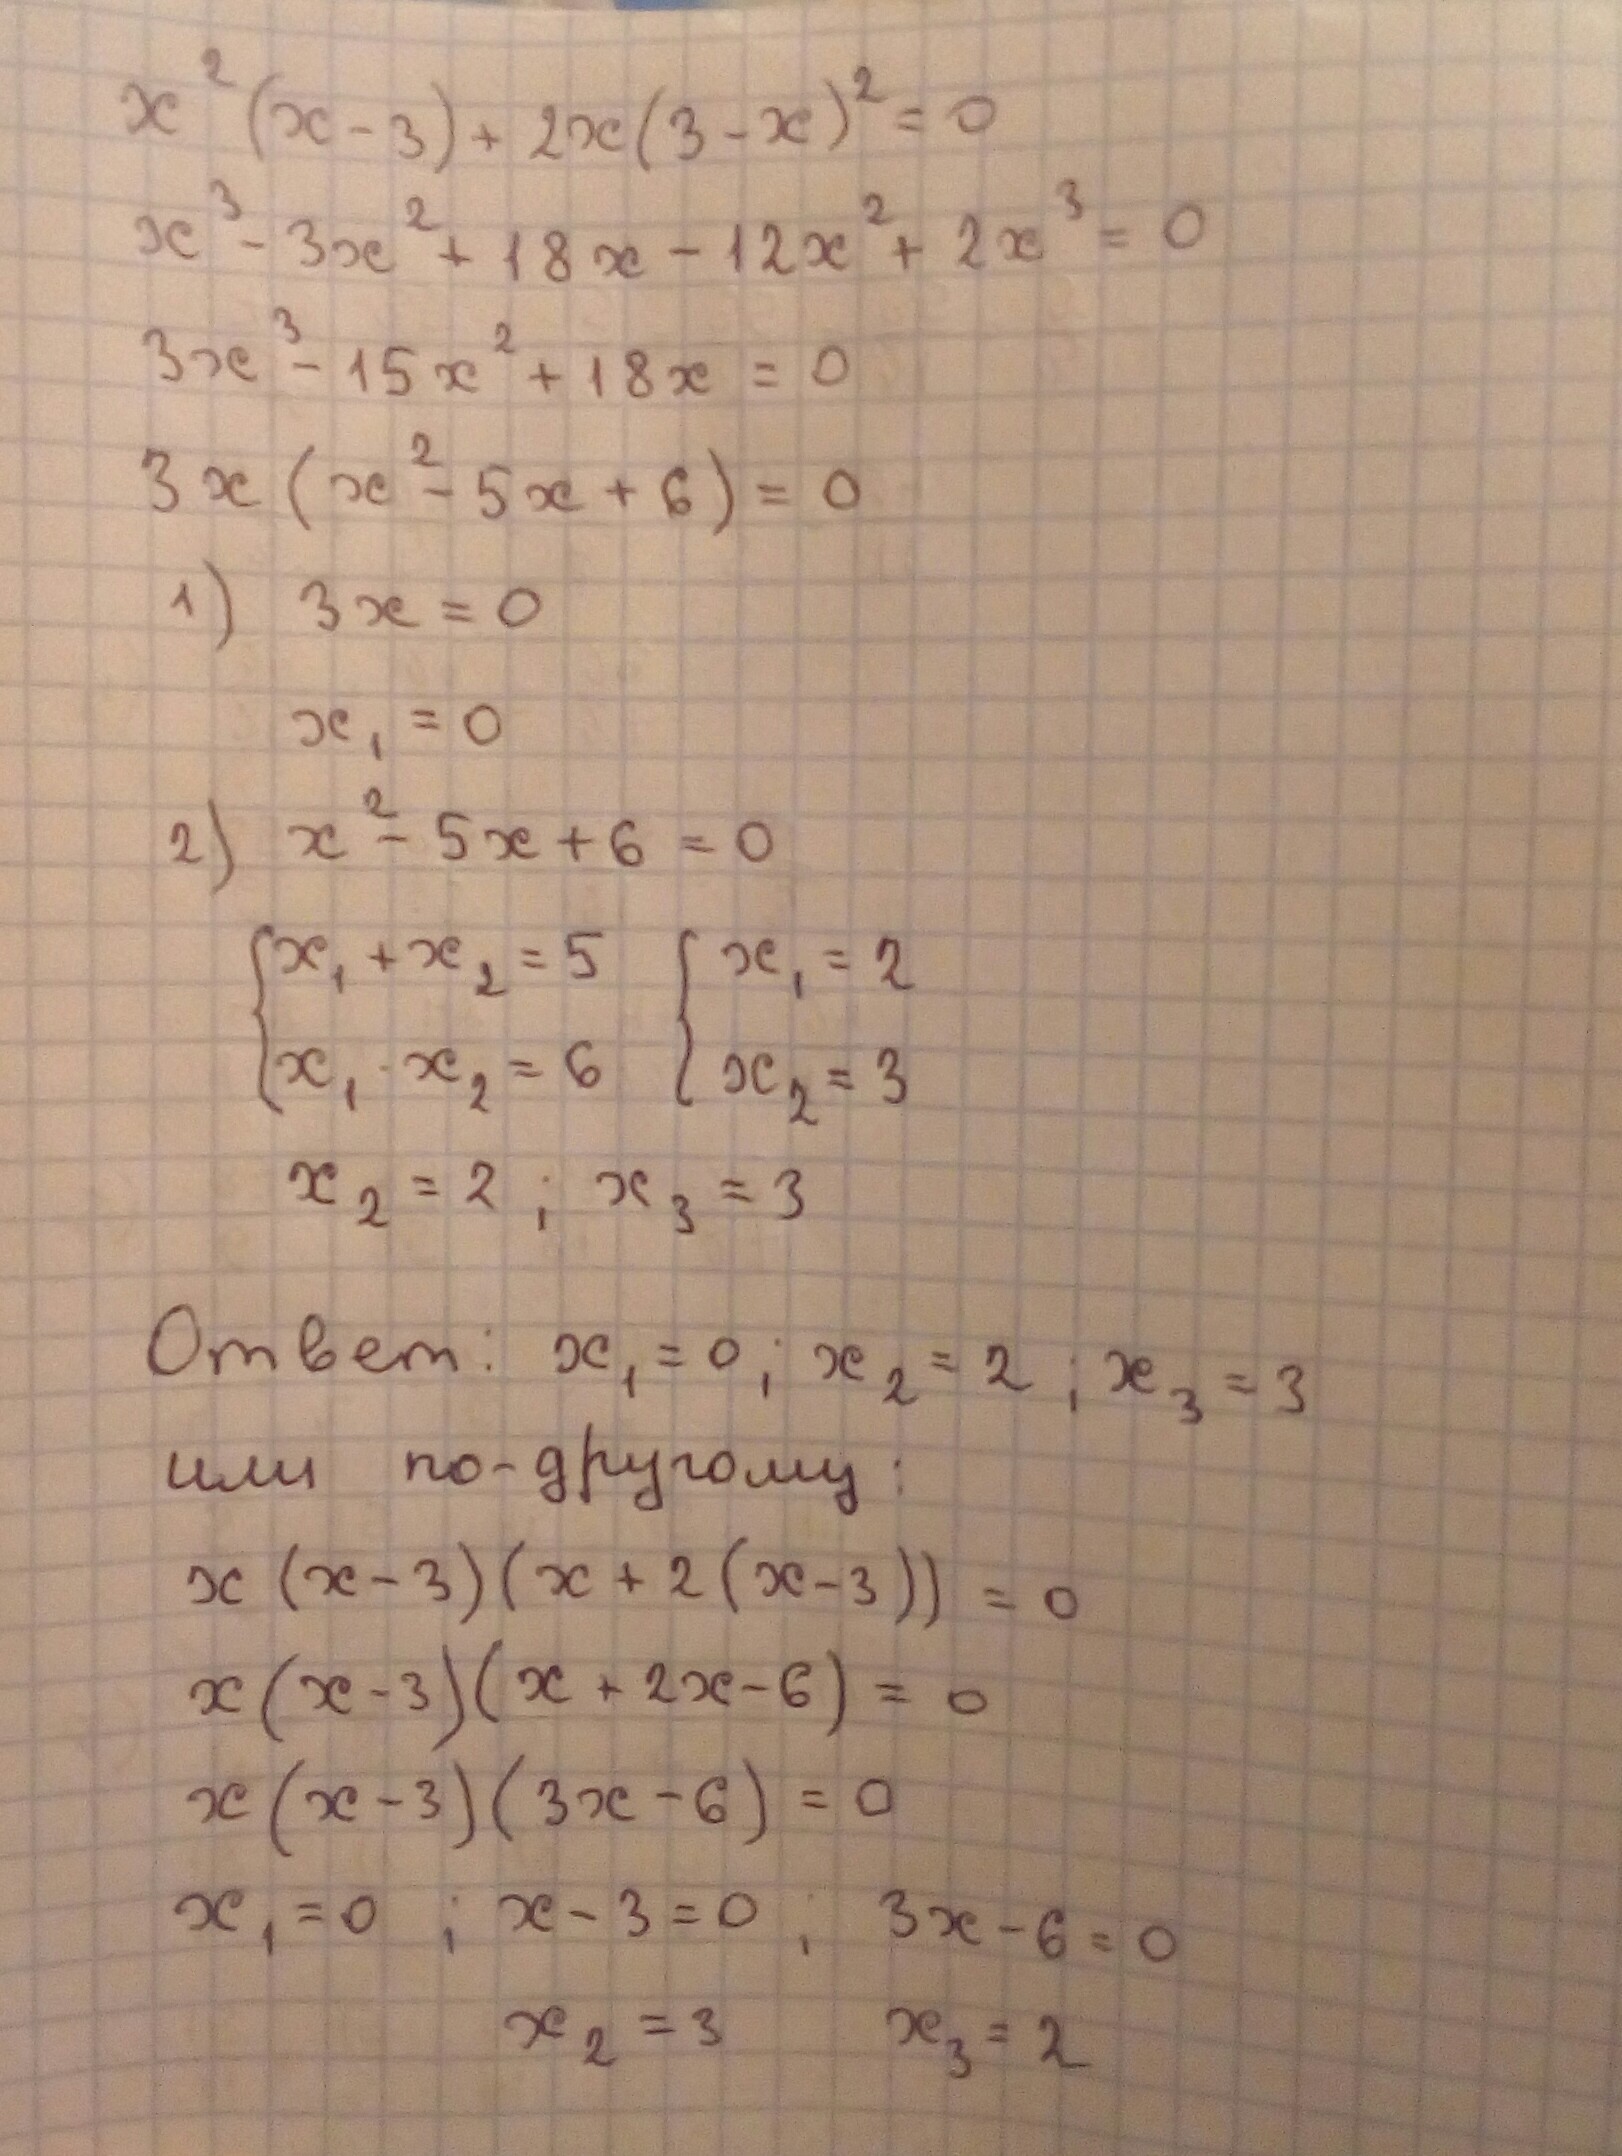 x²(x-3)+2x(3-x)²=0
x³-3x²+18x-12x²+2x³=0
3x³-15x²+18x=0
3x(x²-5x+6)=0
1) 3x=0
x₁=0
2) x²-5x+6=0
{x₁+x₂=5 {x₁=2
{x₁·x₂=6 {x₂=3
x₂=2; x₃=3
Ответ: x₁=0; x₂=2; x₃=3
или по-другому:
x(x-3)(x+2(x-3))=0
x(x-3)(x+2x-6)=0
x(x-3)(3x-6)=0
x₁=0; x-3=0; 3x-6=0
x₂=3 x₃=2